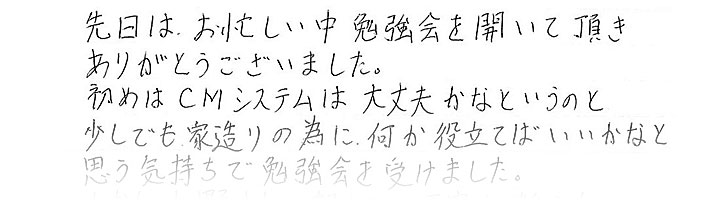 先日は、お忙しい中 勉強会を開いて頂き
ありがとうございました。
初めは CMシステムは 大丈夫かなというのと
少しでも、家造りの為に、何か役立てばいいかなと
思う気持ちで勉強会を受けました。